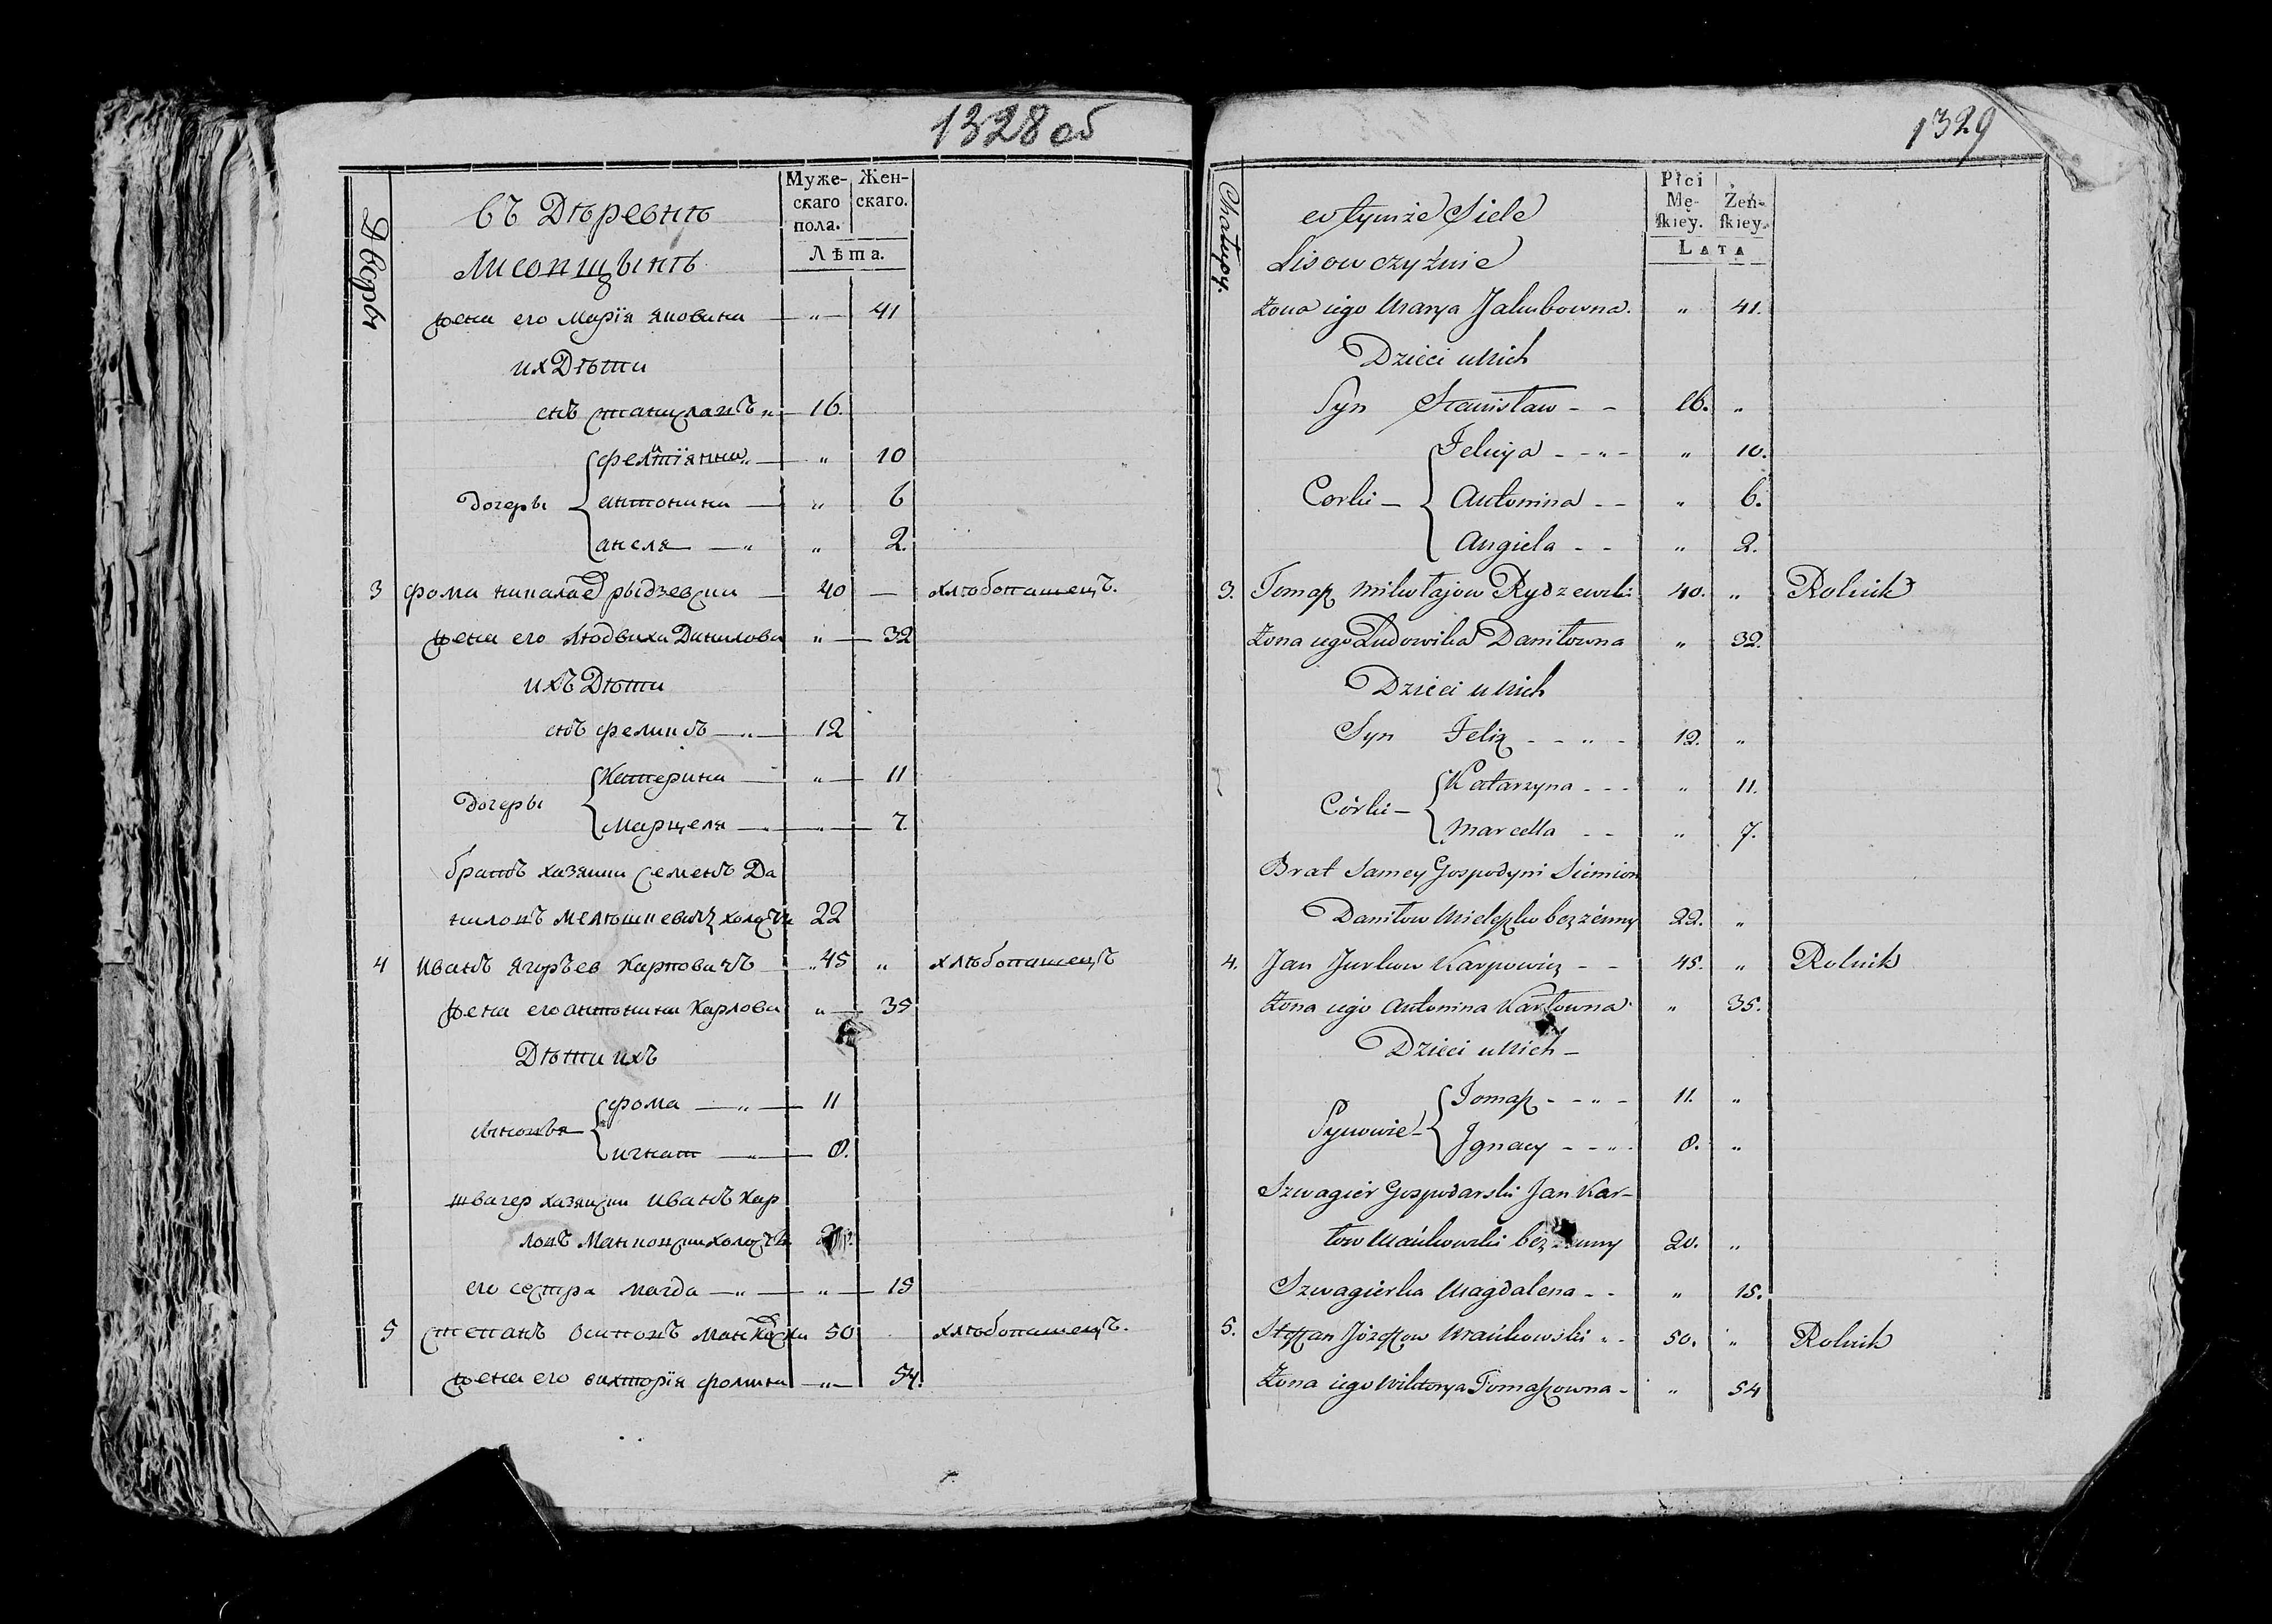 1328 об
Дворы
въ Дѣревнѣ
Муже-
скаго
пола.
Жен-
скаго.
Лисовщызнѣ
Лѣта.
жена его Марія яковина — „ — 41
их Дѣти
снъ станиславъ „ — 16.
фелціянна „ — „ 10
дочеры антонина — „ 6
анеля — „ „ 2.
3 фома николае рыдзевски — 40 — хлѣбопашецъ.
жена его людвика Данилова „ — 32
ихъ Дѣти
снъ феликсъ — „ — 12
Катерина — „ — 11
дочеры
Марцеля — „ — „ — 7
братъ хазяики Семенъ Да
ниловъ холостъ 22
4 Иванъ Ягоръев Карповичъ — „ 45 „ хлѣбопашецъ
жена его антонина Карлова „ — 35
Дѣти ихъ
фома — „ — 11
сыновья
игнат — „ — 8.
швагер хазяиски Иванъ Кар
ловъ Манковски холостъ
его сестра магда — „ — „ — 15
5 степанъ Осиповъ Манковски 50 хлѣбопашецъ.
жена его викторія фомина — „ — 54.
1329
Chałupy.
w tymże Siele
Płci
Mę-
skiey.
Żeń-
skiey.
Lisowczyźnie
Lata
Żona iego Marya Jakubowna. „ 41.
Dzieci u Nich
Syn Stanisław - - 16. „
Felicya - - „ - „ 10.
Corki — Antonina - - „ 6.
Angiela - - „ 2.
3. Tomasz Mikołajow Rydzewski 40. „ Rolnik
Żona iego Ludowika Daniłowna „ 32.
Dzieci u Nich
Syn Felix - - „ - 12. „
Katarzyna - - - „ 11.
Córki —
Marcella - - „ 7.
Brat Samey Gospodyni Siemion
Daniłow Mieleszko bezżenny 22. „
4. Jan Jurkow Karpowicz - - 45. „ Rolnik
Żona iego Antonina Karłowna „ 35.
Dzieci u Nich —
Tomasz - - „ - 11. „
Synowie —
Ignacy - - „ - 8. „
Szwagier Gospodarski Jan Kar-
łow Mańkowski bezżenny 20. „
Szwagierka Magdalena - - „ 15.
5. Stefan Józefow Mańkowski „ - 50. „ Rolnik
Żona iego Wiktorya Tomaszowna - „ 54